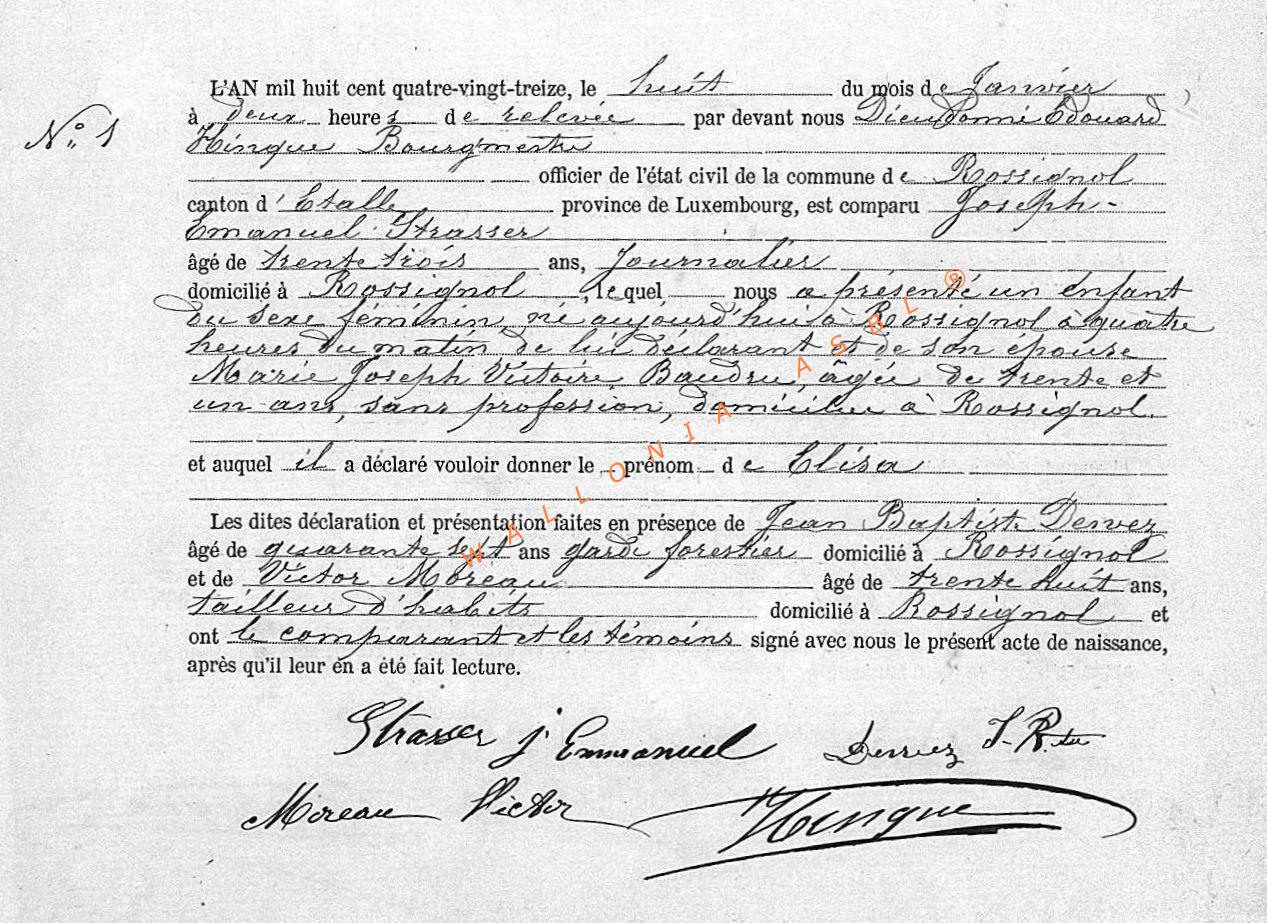 L'AN mil huit cent quatre-vingt-treize, le huit du mois de Janvier
N° 1
à deux heures de relevée par devant nous Dieudonné Edouard
Hinque Bourgmestre
officier de l'état civil de la commune de Rossignol
canton d'Etalle province de Luxembourg, est comparu Joseph-
Emanuel Strasser
âgé de trente trois ans, Journalier
domicilié à Rossignol, lequel nous a présenté un enfant
du sexe féminin, né aujourd'hui à Rossignol à quatre
heures du matin de lui déclarant et de son épouse
Marie Joseph Victoire Baudru, âgée de trente et
un ans, sans profession, domiciliée à Rossignol.
et auquel il a déclaré vouloir donner le prénom de Elisa
Les dites déclaration et présentation faites en présence de Jean Baptiste Dervez
âgé de quarante sept ans garde forestier domicilié à Rossignol
et de Victor Moreau âgé de trente huit ans,
tailleur d'habits domicilié à Rossignol et
ont le comparant et les témoins signé avec nous le présent acte de naissance,
après qu'il leur en a été fait lecture.
Strasser j Emmanuel Dervez J-B.te
Moreau Victor Hinque
WALLONIA ASBL ®